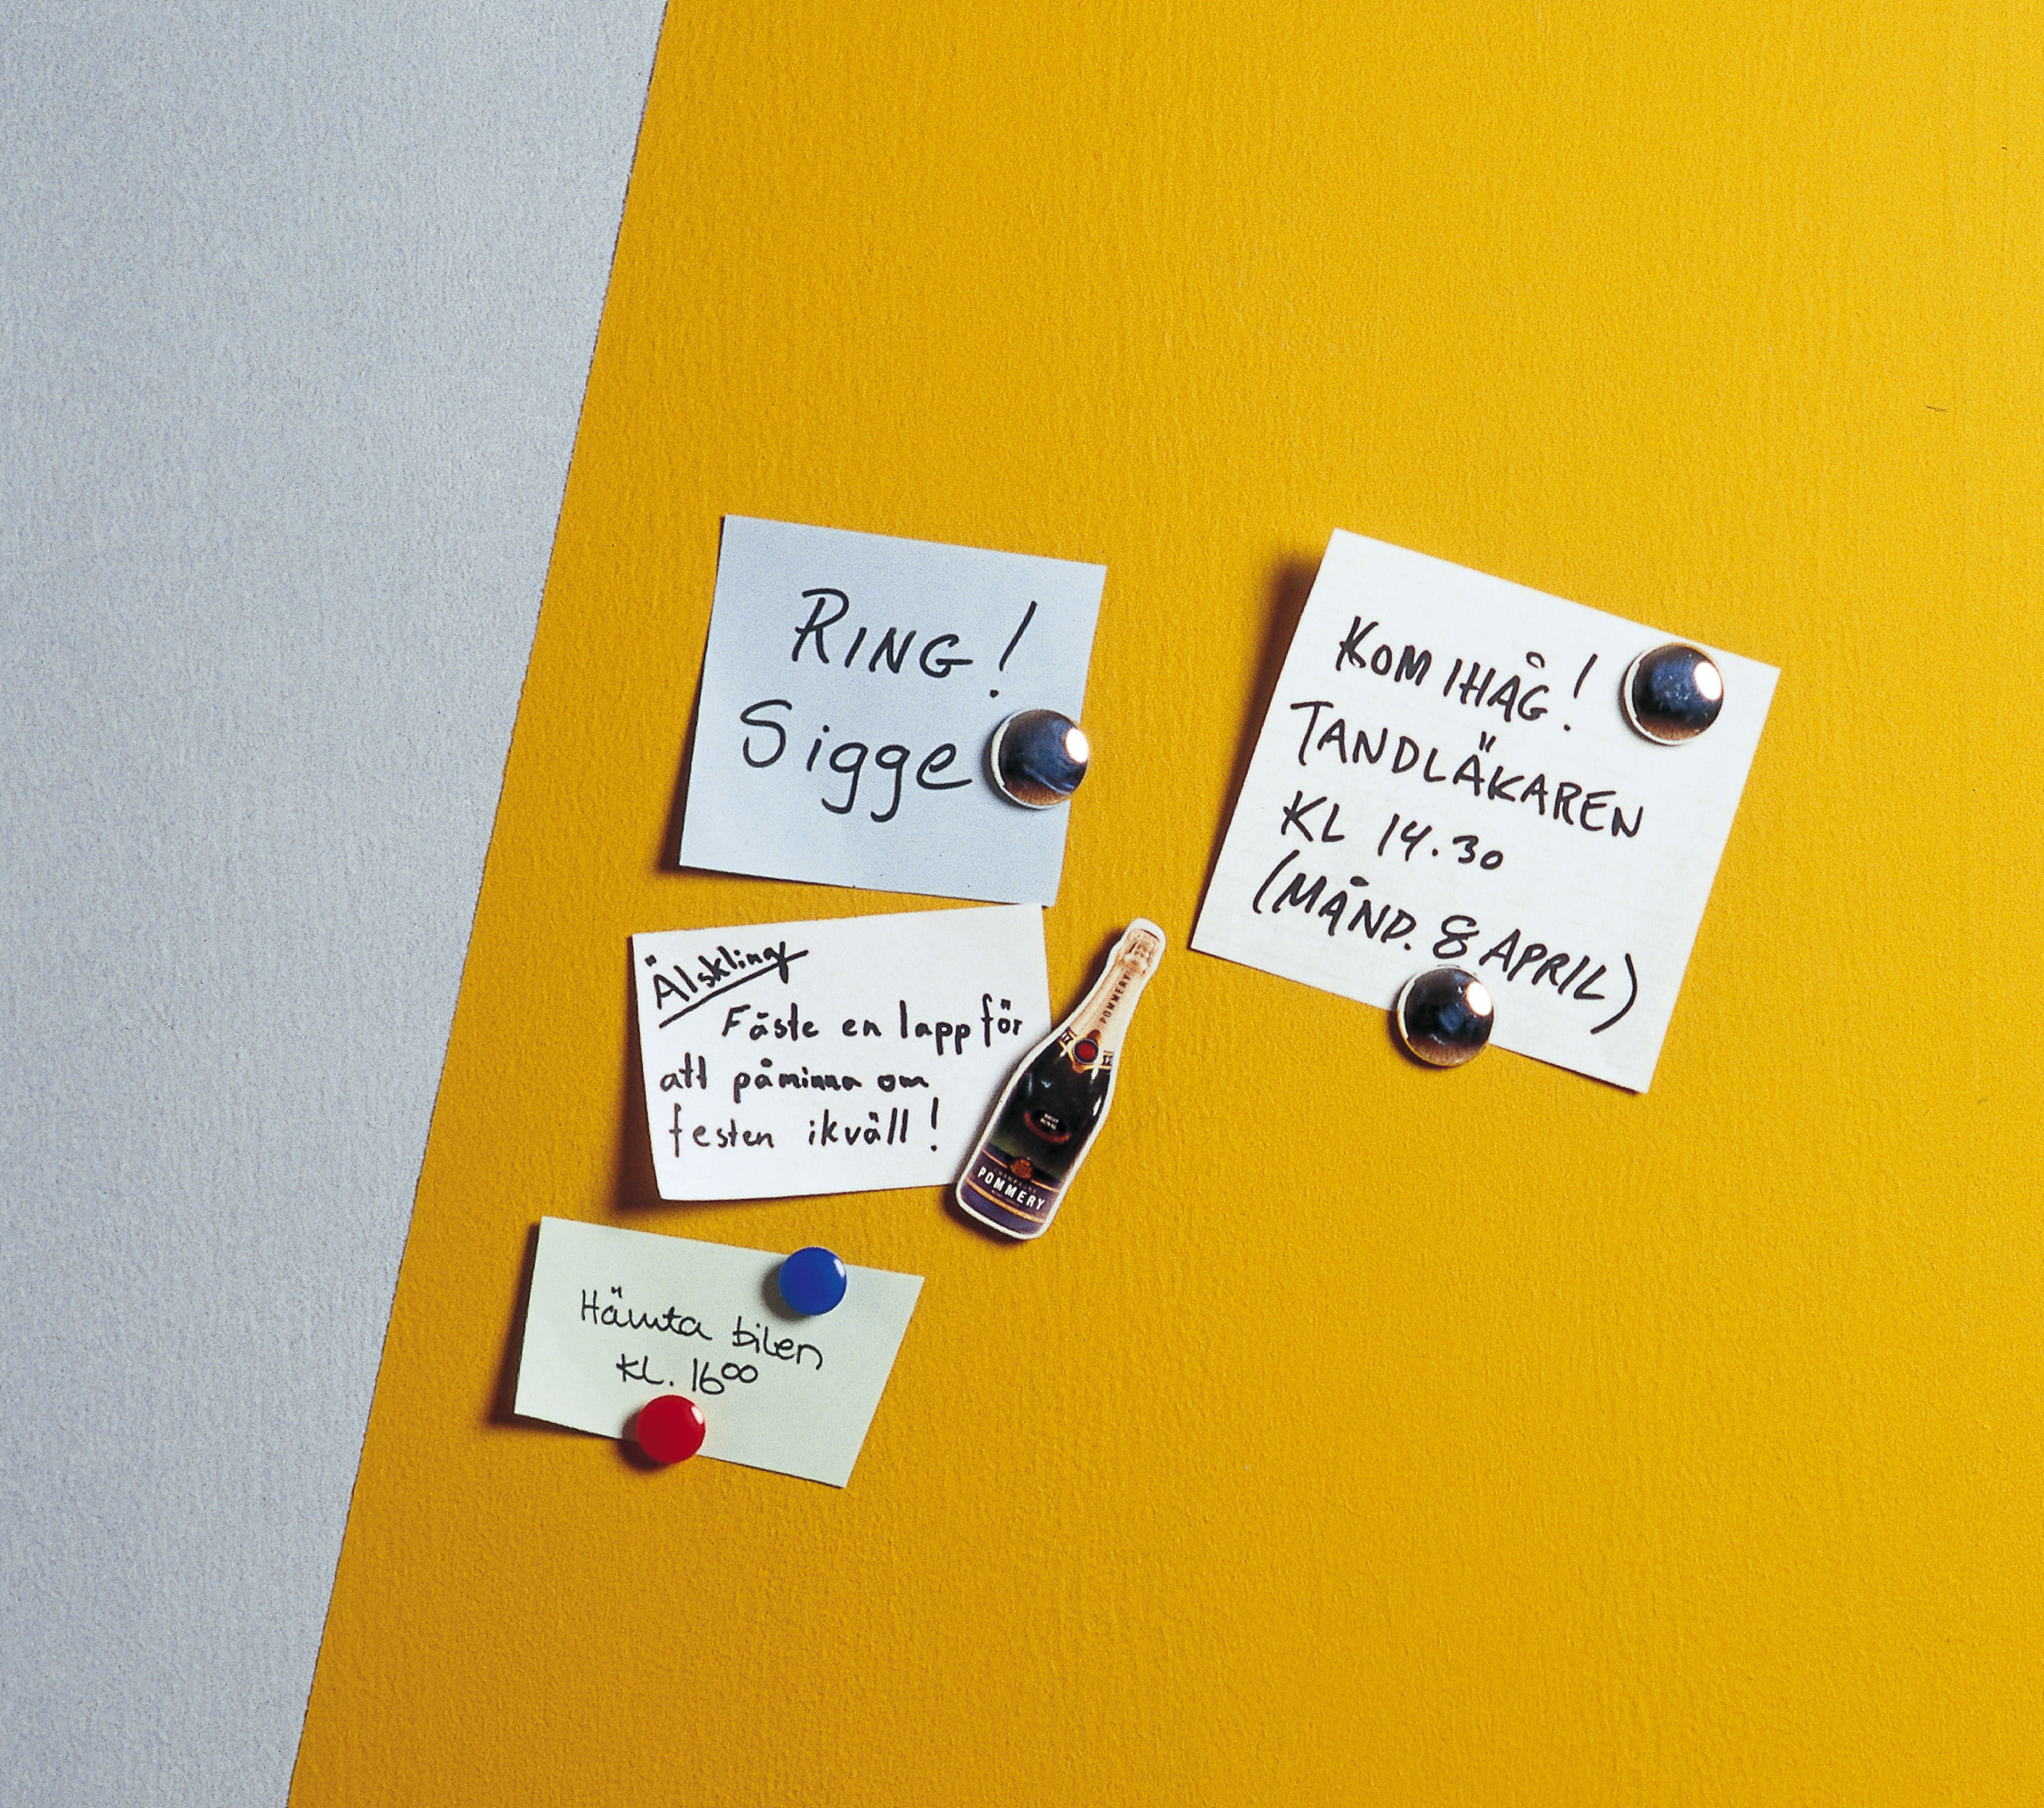 RING!
Sigge
KOM IHÅG!
TANDLÄKAREN
KL 14.30
(MÅND. 8 APRIL)
Älskling
Fäste en lapp för
att påminna om
festen ikväll!
POMMERY
POMMERY
Hämta bilen
KL. 16⁰⁰